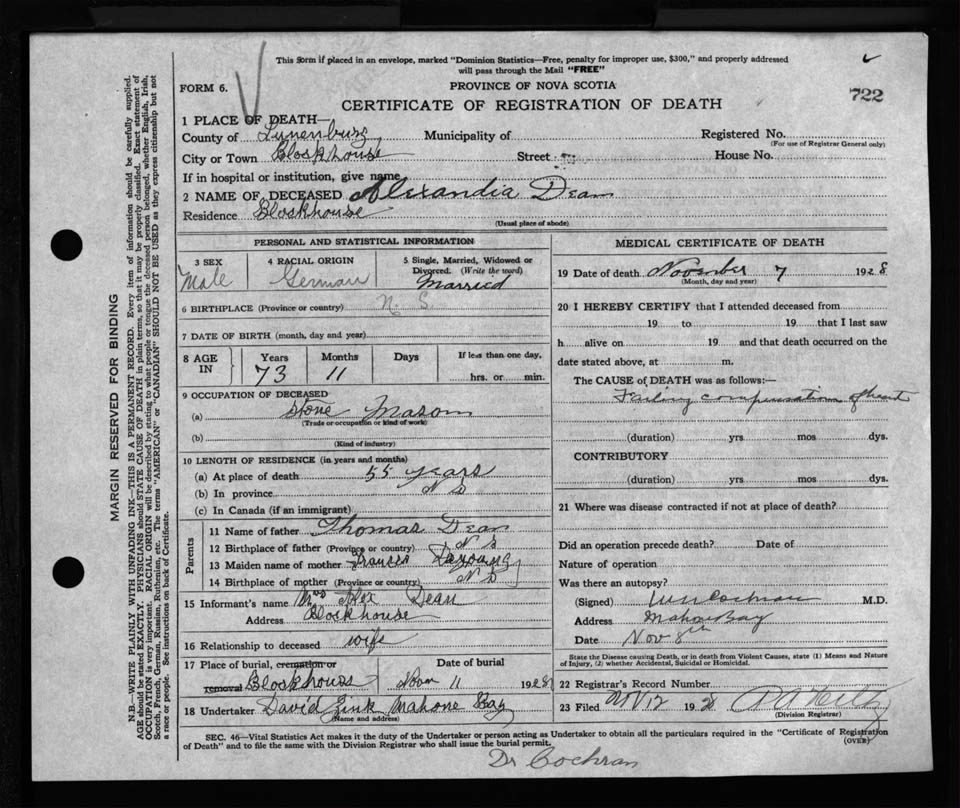 This form if placed in an envelope, marked "Dominion Statistics—Free, penalty for improper use, $300," and properly addressed
will pass through the Mail "FREE"
FORM 6.
PROVINCE OF NOVA SCOTIA
722
CERTIFICATE OF REGISTRATION OF DEATH
1 PLACE OF DEATH—
County of Lunenburg Municipality of Registered No.
(For use of Registrar General only)
City or Town Blockhouse Street House No.
If in hospital or institution, give name
2 NAME OF DECEASED Alexandia Dean
Residence Blockhouse
(Usual place of abode)
PERSONAL AND STATISTICAL INFORMATION
3 SEX
Male
4 RACIAL ORIGIN
German
5 Single, Married, Widowed or
Divorced. (Write the word)
Married
6 BIRTHPLACE (Province or country) N. S.
7 DATE OF BIRTH (month, day and year)
8 AGE IN Years Months Days If less than one day,
73 11 hrs. or min.
9 OCCUPATION OF DECEASED
(a) Stone Mason
(Trade or occupation or kind of work)
(b)
(Kind of industry)
10 LENGTH OF RESIDENCE (in years and months)
(a) At place of death 55 years
(b) In province N S
(c) In Canada (if an immigrant)
Parents
11 Name of father Thomas Dean
12 Birthplace of father (Province or country) N S
13 Maiden name of mother Frances
14 Birthplace of mother (Province or country) N S
15 Informant's name Mrs Alex Dean
Address Blockhouse
16 Relationship to deceased wife
17 Place of burial, cremation or Date of burial
removal Blockhouse Nov 11 1928
18 Undertaker David Zink Mahone Bay
(Name and address)
MEDICAL CERTIFICATE OF DEATH
19 Date of death November 7 1928
(Month, day and year)
20 I HEREBY CERTIFY that I attended deceased from
19 to 19 that I last saw
h alive on 19 and that death occurred on the
date stated above, at m.
The CAUSE of DEATH was as follows:—
Failing compensation of heart
(duration) yrs mos dys.
CONTRIBUTORY
(duration) yrs mos dys.
21 Where was disease contracted if not at place of death?
Did an operation precede death? Date of
Nature of operation
Was there an autopsy?
(Signed) Cochran M.D.
Address Mahone Bay
Date Nov 8th
State the Disease causing Death, or in death from Violent Causes, state (1) Means and Nature
of Injury, (2) whether Accidental, Suicidal or Homicidal.
22 Registrar's Record Number
23 Filed Nov 12 1928
(Division Registrar)
SEC. 46—Vital Statistics Act makes it the duty of the Undertaker or person acting as Undertaker to obtain all the particulars required in the "Certificate of Registration
of Death" and to file the same with the Division Registrar who shall issue the burial permit.
(OVER)
Dr Cochran
MARGIN RESERVED FOR BINDING
N.B.—WRITE PLAINLY WITH UNFADING INK—THIS IS A PERMANENT RECORD. Every item of information should be carefully supplied.
AGE should be stated EXACTLY. PHYSICIANS should STATE CAUSE OF DEATH in plain terms, so that it may be properly classified. Exact statement of
OCCUPATION is very important. RACIAL ORIGIN will be described by stating to what people or tongue the deceased person belonged, whether English, Irish,
Scotch, French, German, Russian, Ruthenian, etc. The terms "AMERICAN" or "CANADIAN" SHOULD NOT BE USED as they express citizenship but not
a race or people. See instructions on back of Certificate.